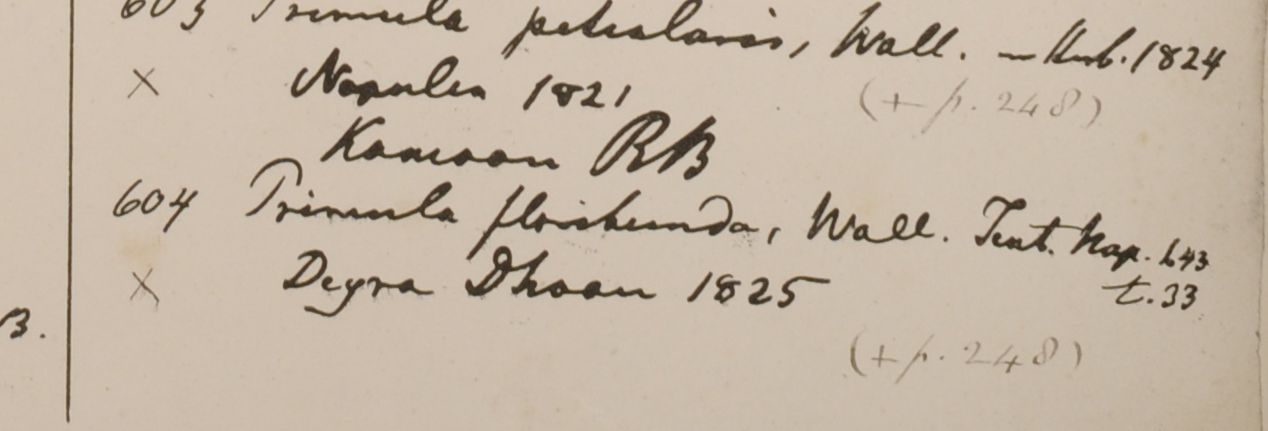 603 Primula petiolaris, Wall. — Herb. 1824
× Napalia 1821 (+ p. 248)
Kamaon RB
604 Primula floribunda, Wall. Tent. Nap. t.43
t. 33
× Deyra Dhoon 1825
B.
(+ p. 248)